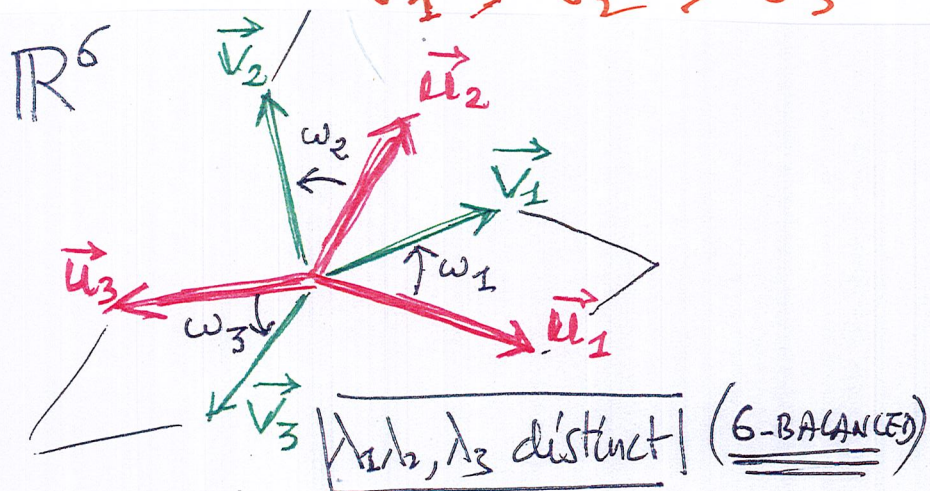 ℝ⁶
v⃗₂
u⃗₂
ω₂
v⃗₁
u⃗₃
ω₁
ω₃
u⃗₁
v⃗₃
λ₁,λ₂,λ₃ distinct (6-BALANCED)